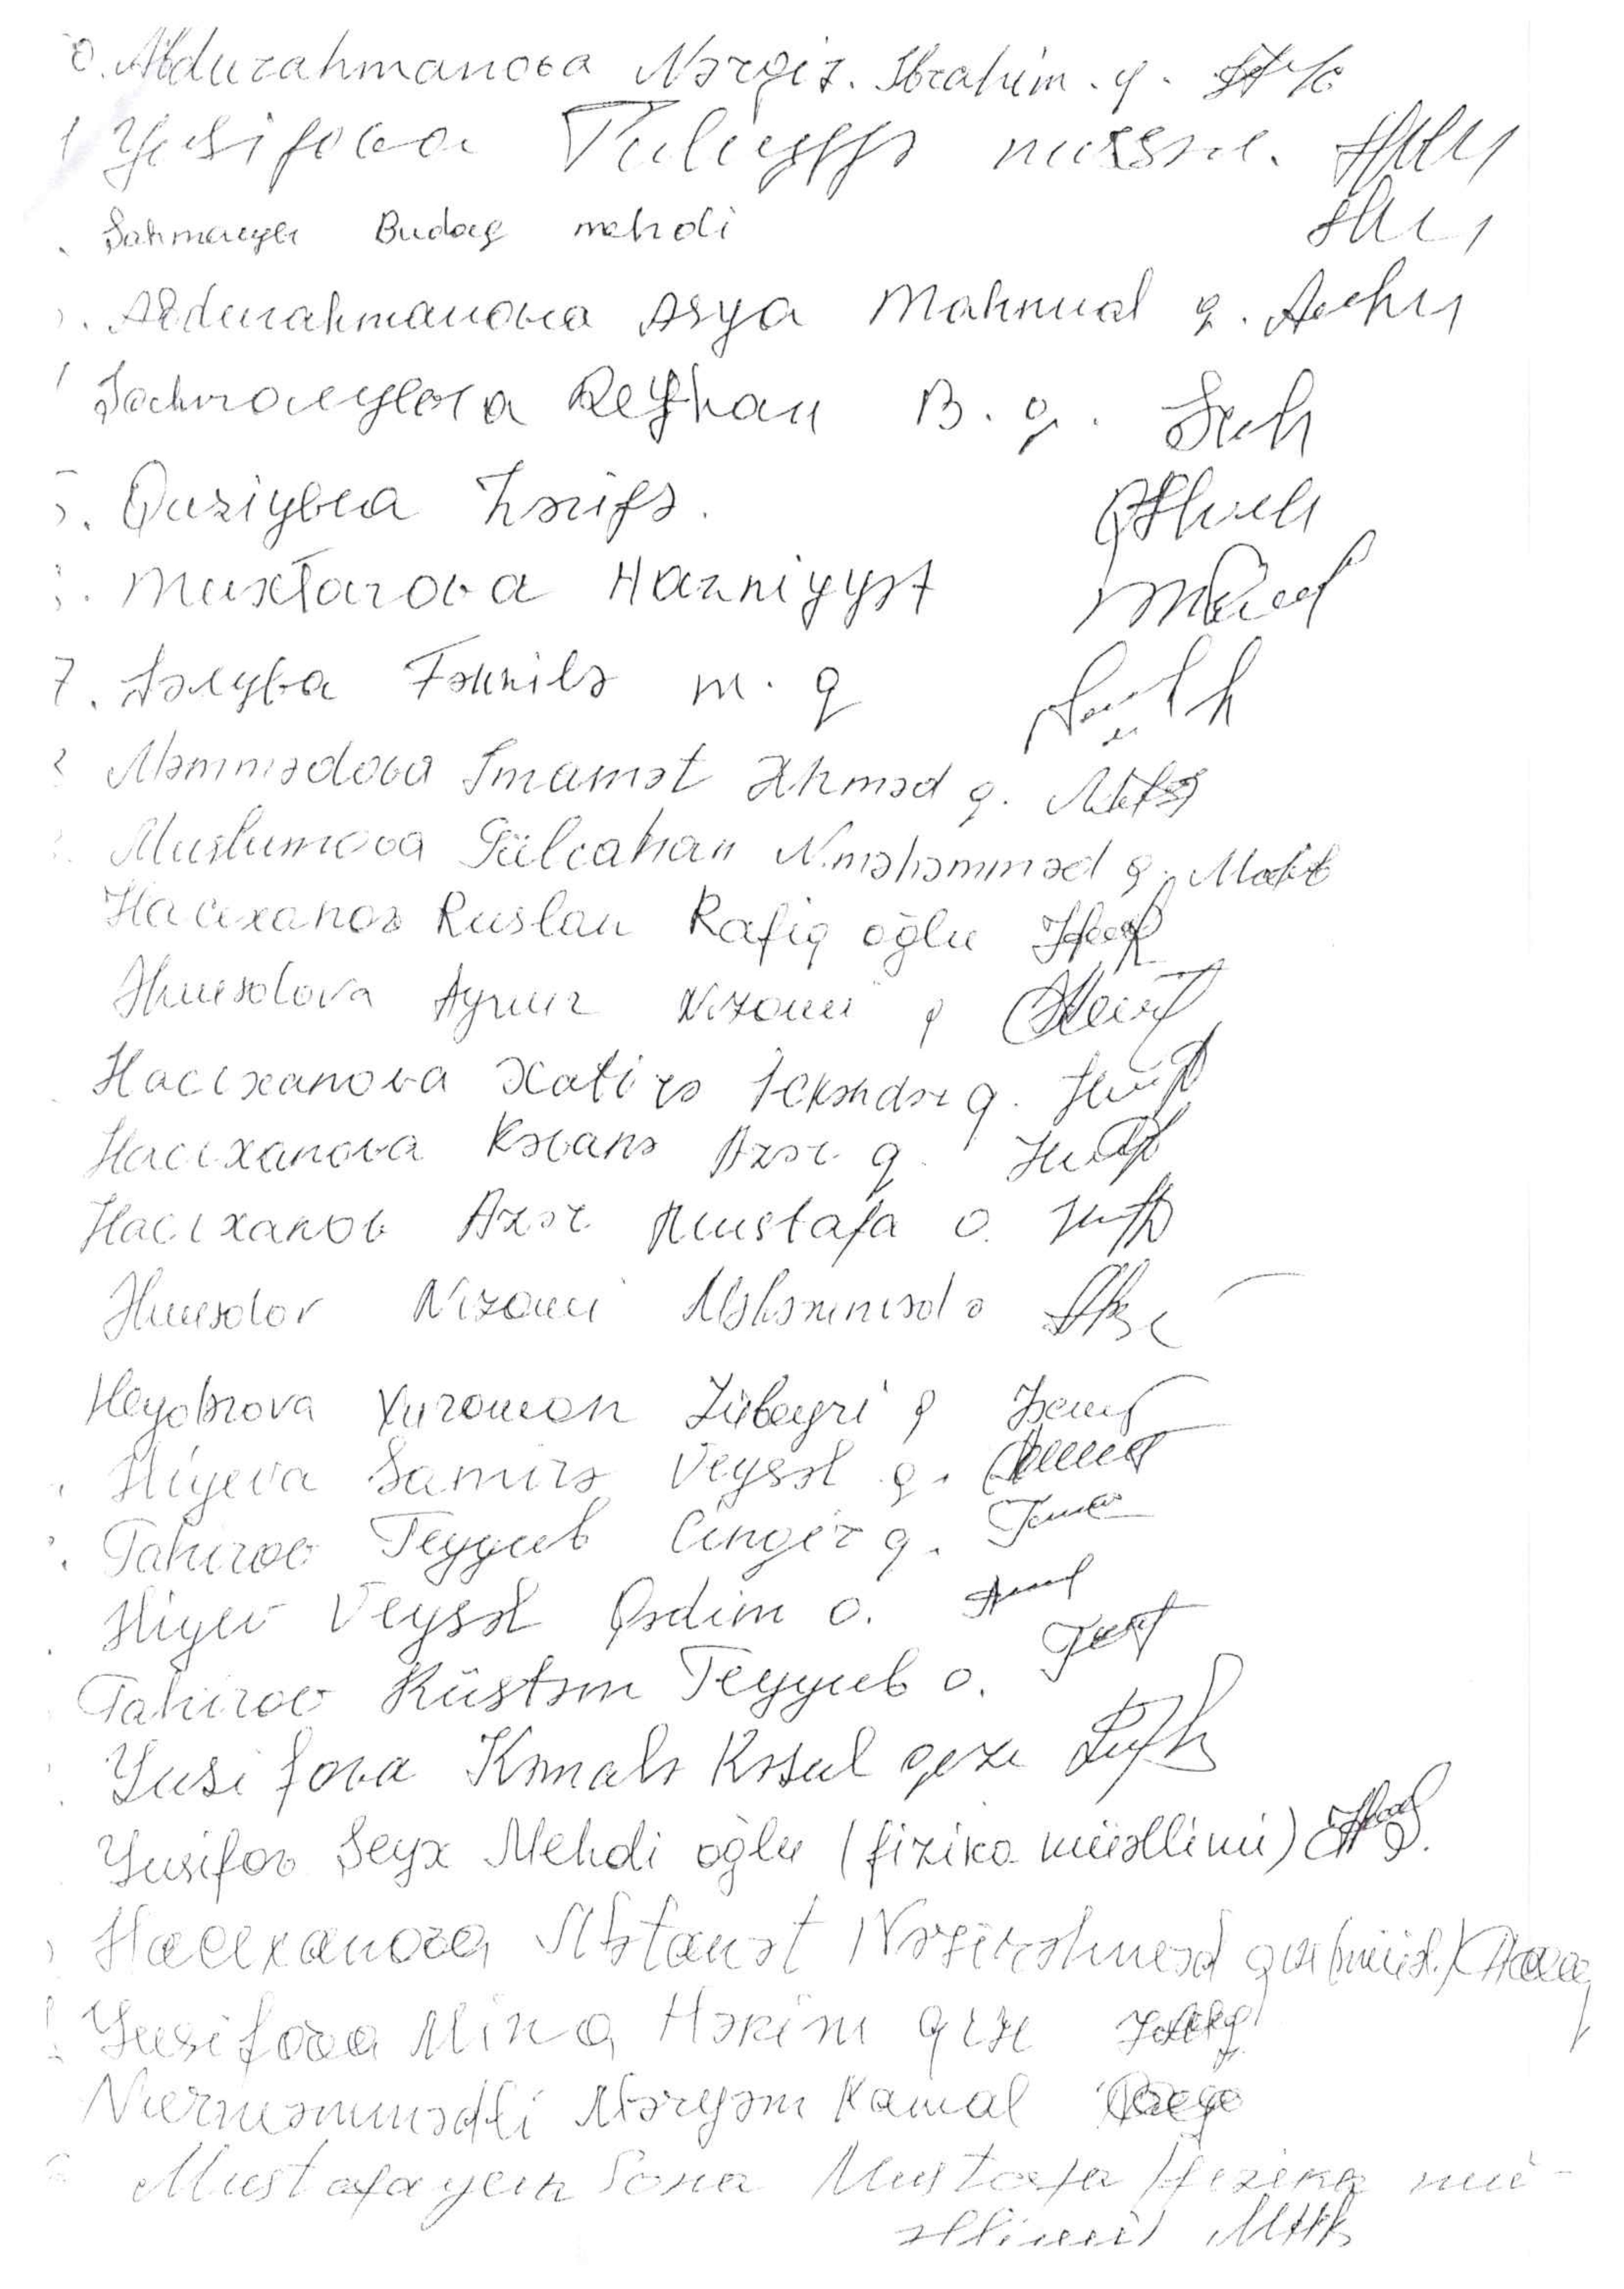 0. Abdurahmanova Nərgiz. Ibrahim. q.
Yusifova
Budaq mehdi
Abdurahmanova Asya Mahmud q.
Reyhan B. q.
5. Quziyeva Zərifə.
Muxtarova Hazniyyət
7. Fəxrilə m. q
Məmmədova İmamət Əhməd q.
Muslumova Gülcahan N.məhəmməd q.
Hacıxanov Ruslan Rafiq oğlu
Əhmədova Aynur Nizami q
Hacıxanova Xatirə İckəndər q.
Hacıxanova Rəvanə Azər q.
Hacıxanov Azər Mustafa o.
Əhmədov Nizami Məhəmməd o
Heydərova Xuraman Zübeyri q
Əliyeva Samirə Veysəl q.
Tahirov Teyyub Cingiz q.
Əliyev Veysəl Qədim o.
Tahirov Rüstəm Teyyub o.
Yusifova Kəmalə Rəsul qızı
Yusifov Şeyx Mehdi oğlu (fizika müəllimi)
Hacıxanova Mətanət Nəzirəhməd qızı (müəl.)
Yusifova Mina Həkim qızı
Nurməmmədli Məryəm Kamal
Mustafayeva Sona Mustafa (fizika mü-
əllimi)